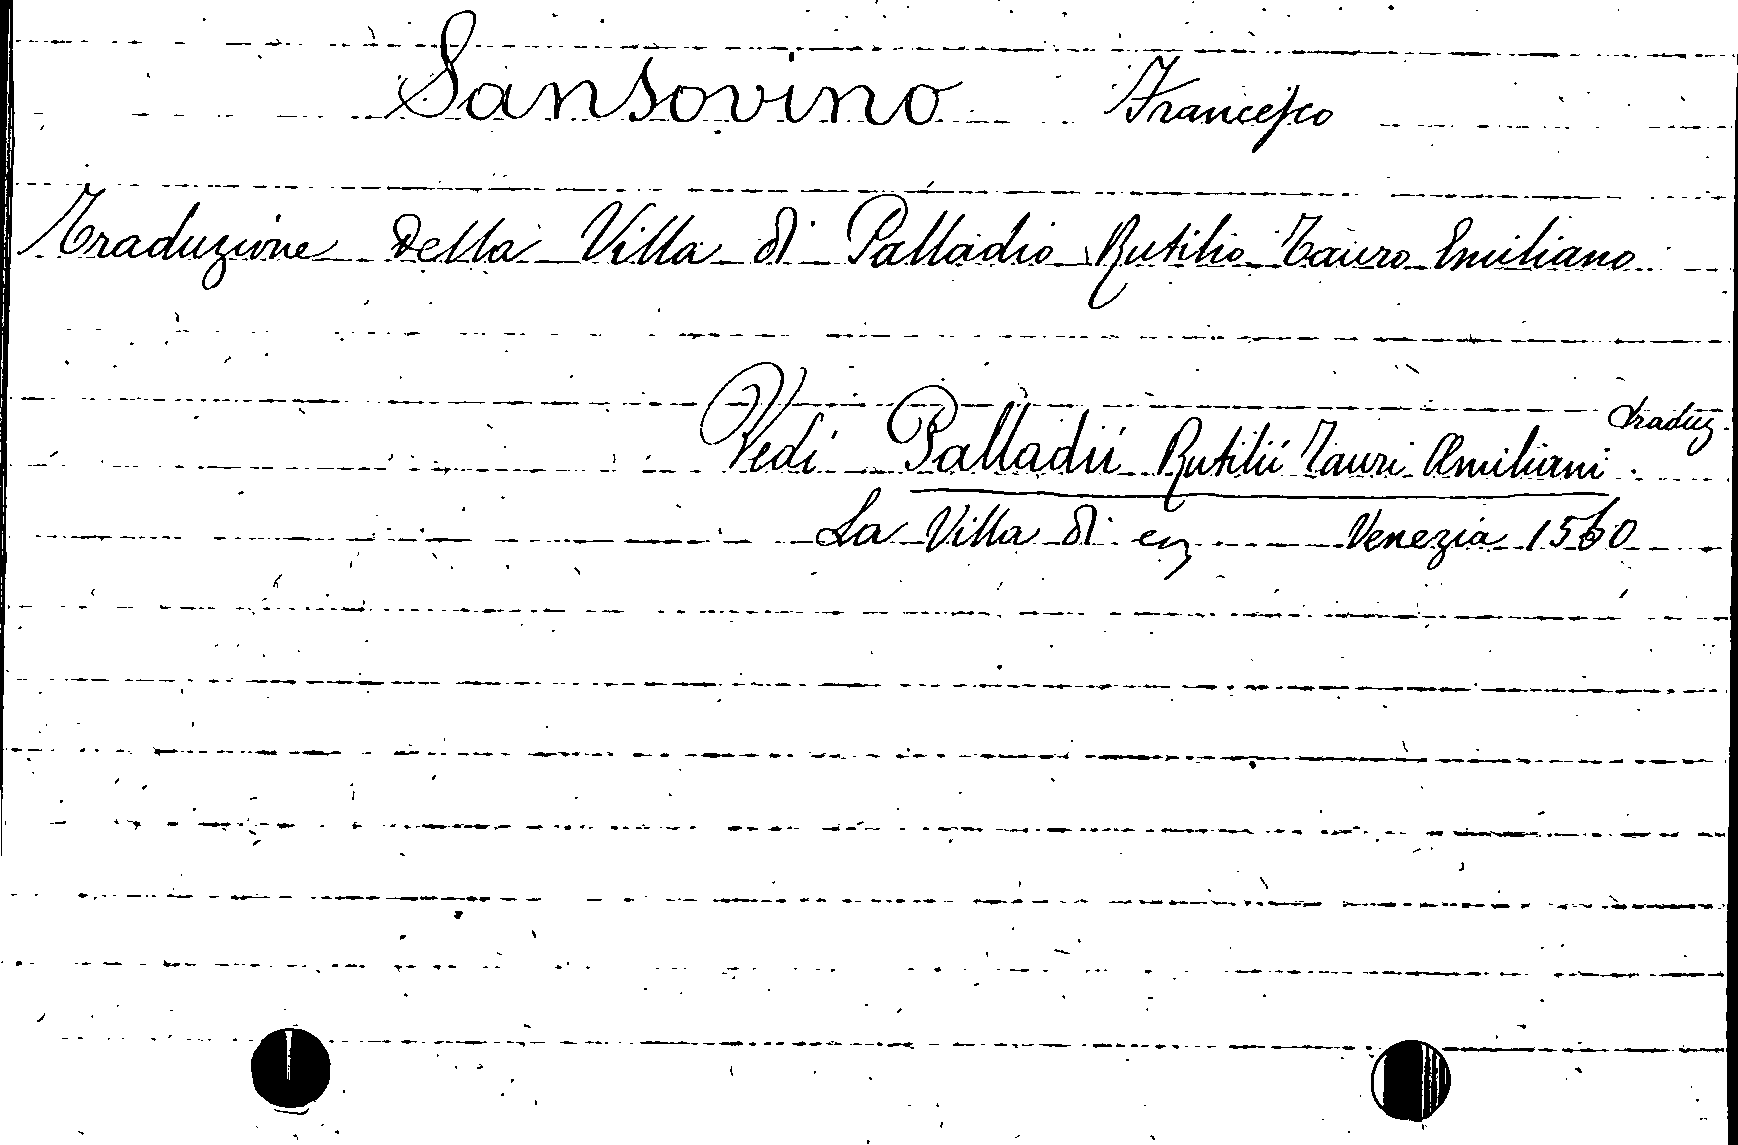 Sansovino Francesco
Traduzione della Villa di Palladio Rutilio Tauro Emiliano
Vedi Palladii Rutilii Tauri Æmiliani traduz.
La Villa di ec Venezia 1560